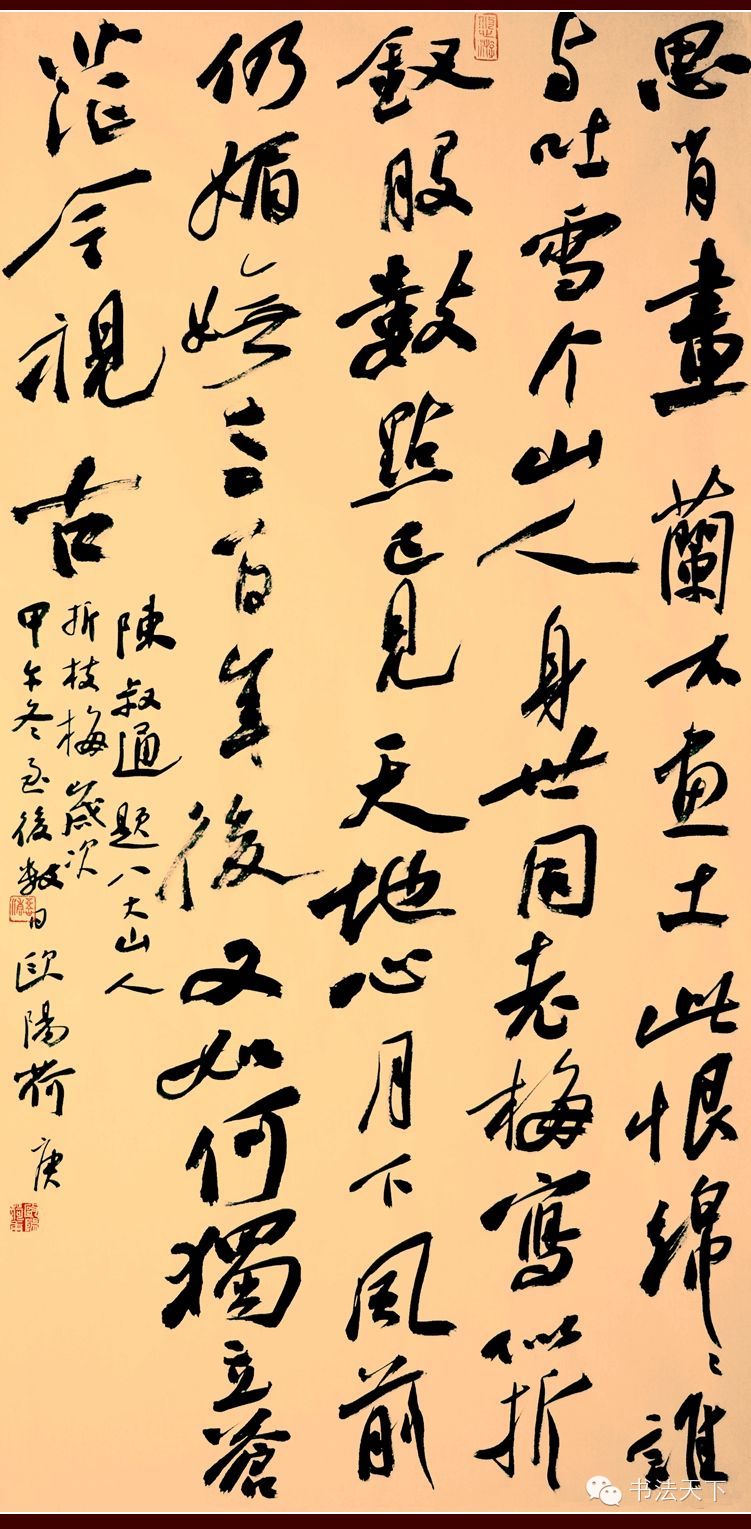 思肖畫蘭不画土此恨綿〻誰
与吐雪个山人身世同老梅寫似折
釵股數點已見天地心月下風前
仍媚嫵三百年後又如何獨立蒼
茫今視古
陳叔通題八大山人
折枝梅歲次
甲午冬至後數日歐陽荷庚
书法天下